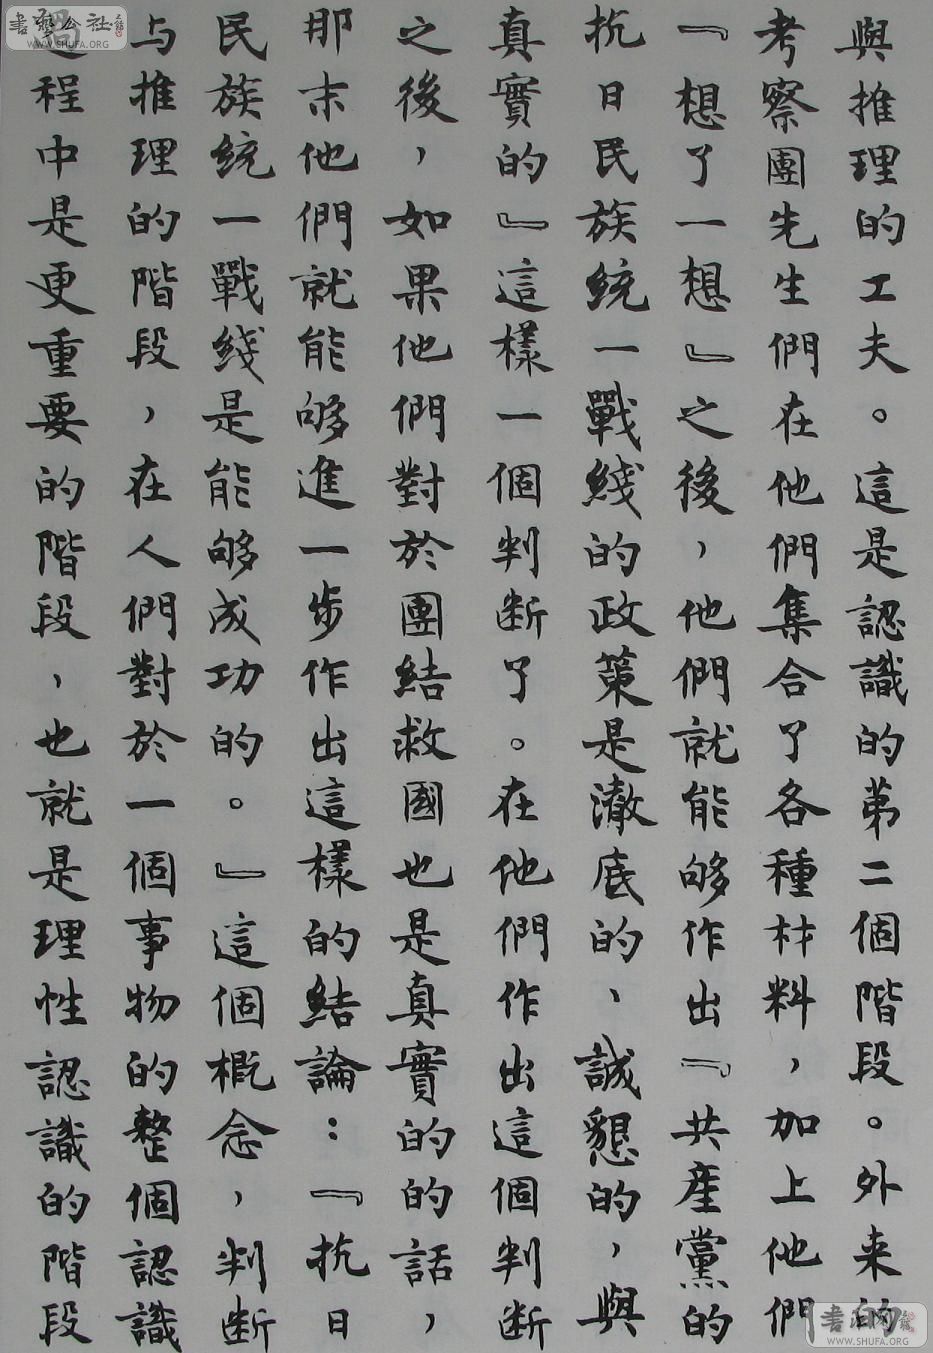 與推理的工夫。這是認識的第二個階段。外来的
考察團先生們在他們集合了各種材料，加上他們
『想了一想』之後，他們就能够作出『共産黨的
抗日民族統一戰綫的政策是澈底的、誠懇的，與
真實的』這樣一個判断了。在他們作出這個判断
之後，如果他們對於團結救國也是真實的的話，
那末他們就能够進一步作出這樣的結論：『抗日
民族統一戰綫是能够成功的。』這個概念，判断
与推理的階段，在人們對於一個事物的整個認識
過程中是更重要的階段，也就是理性認識的階段
書藝公社
WWW.SHUFA.ORG
書法網
WWW.SHUFA.ORG